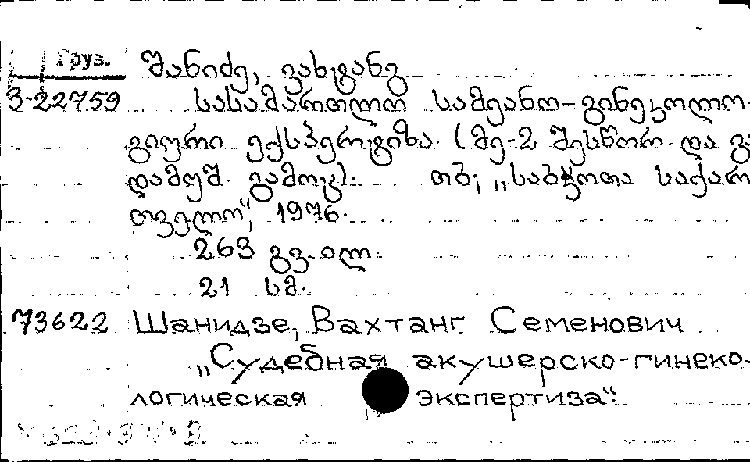 Груз.
3-22759
შანიძე, ვახტანგ
სასამართლო სამეანო-გინეკოლო-
გიური ექსპერტიზა. (მე-2 შესწორ. და გ
დამუშ. გამოც.). თბ., „საბჭოთა საქარ
თველო“, 1976.
263 გვ. ილ.
21 სმ.
73622 Шанидзе, Вахтанг Семенович
„Судебная акушерско-гинеко-
логическая экспертиза“.